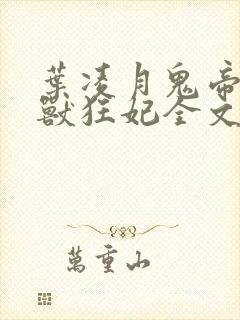 葉凌月鬼帝
獸狂妃全文
萬重山